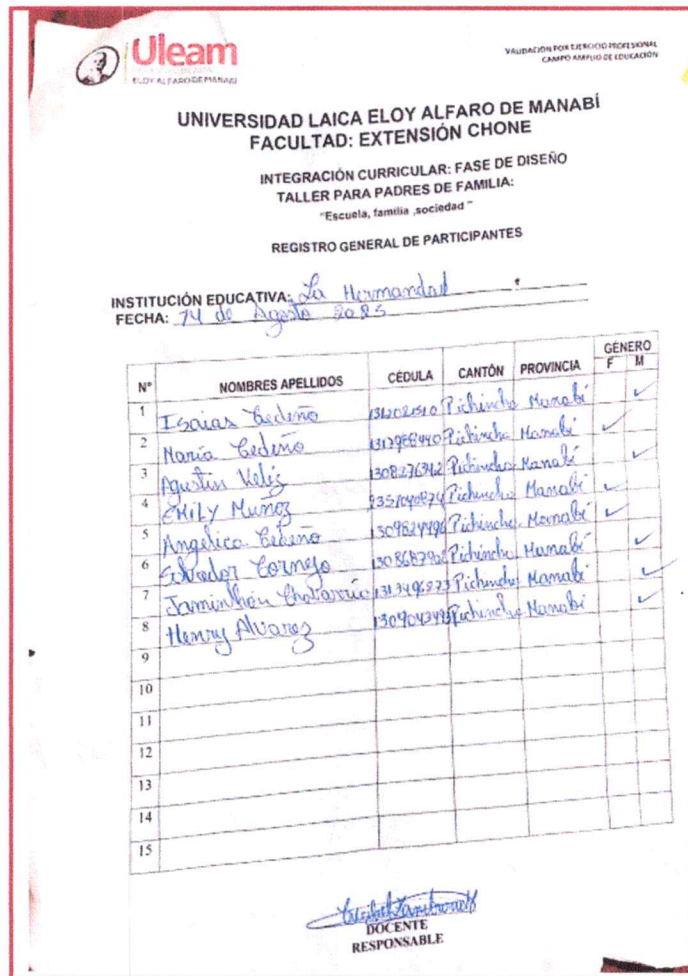 Uleam
ELOY ALFARO DE MANABÍ
VALIDACIÓN POR EJERCICIO PROFESIONAL
CAMPO AMPLIO DE EDUCACIÓN
UNIVERSIDAD LAICA ELOY ALFARO DE MANABÍ
FACULTAD: EXTENSIÓN CHONE
INTEGRACIÓN CURRICULAR: FASE DE DISEÑO
TALLER PARA PADRES DE FAMILIA:
"Escuela, familia ,sociedad "
REGISTRO GENERAL DE PARTICIPANTES
INSTITUCIÓN EDUCATIVA: La Hermandad
FECHA: 14 de Agosto 2025
N° NOMBRES APELLIDOS CÉDULA CANTÓN PROVINCIA GÉNERO
F M
1 Isaias Cedeño Pichincha Manabí ✓
2 María Cedeño Pichincha Manabí ✓
3 Agustin Veliz 1308276342 Pichincha Manabí ✓
4 EMILY Muñoz Pichincha Manabí ✓
5 Angelica Cedeño Pichincha Manabí ✓
6 Salvador Cornejo Pichincha Manabí ✓
7 Pichincha Manabí ✓
8 Henry Alvarez Pichincha Manabí ✓
9
10
11
12
13
14
15
DOCENTE
RESPONSABLE